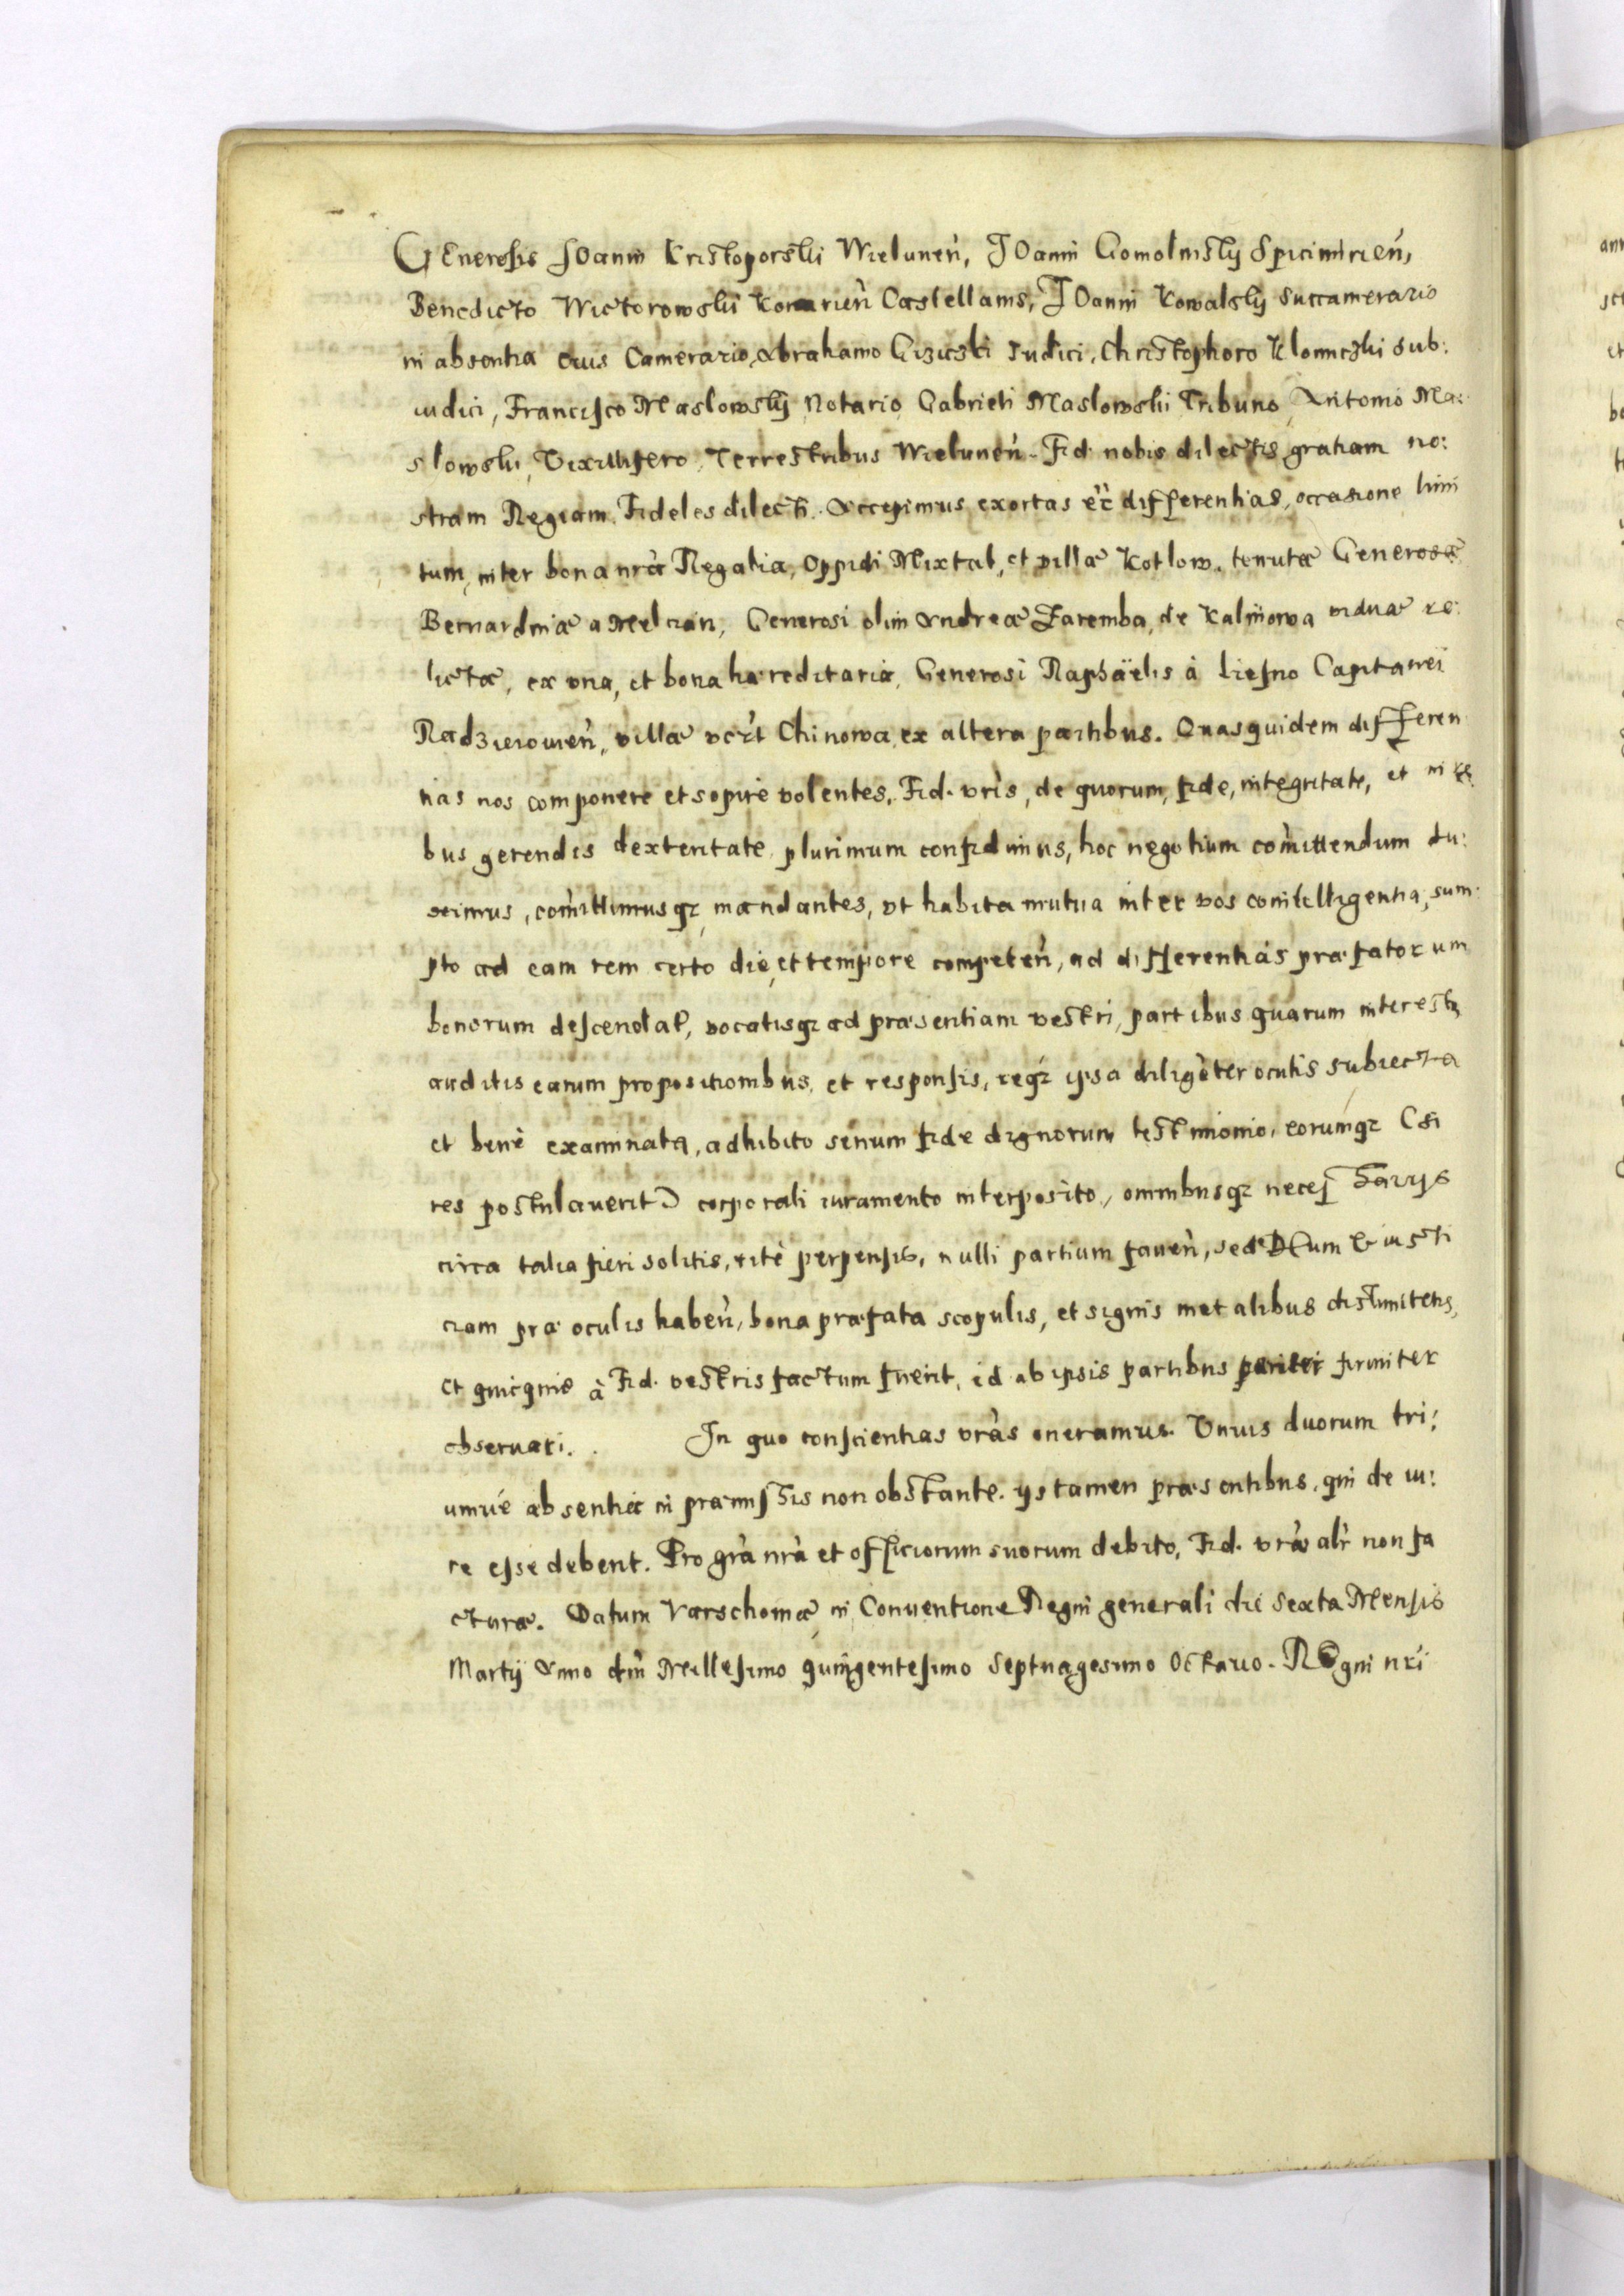 GEnerosis JOanni Kristoporski Wielunen̄, JOanni Gomolinsky Spicimirien̄,
Benedicto Wictorowski Konarien̄ Castellanis, JOanni Kowalsky Succamerario
in absentia eius Camerario, Abrahamo Gizicski Judici, Christophoro Klonncski sub:
iudici, Francisco Maslowsky Notario, Gabrieli Maslowski Tribuno Antonio Ma:
slowski, Vixillifero, Terrestribus Wielunen̄. Fid. nobis dilectis gratiam no:
stram Regiam. Fideles dilecti. Accepimus exortas ec̄ differentias, occasione limi
tum, inter bona nrā Regalia, Oppidi Mixtat, et villæ Kotlow. tenutæ Generosæ
Bernardinæ a Melczin, Generosi olim Andreæ Zaremba, de Kalinowa viduæ re:
lictæ, ex vna, et bona hæreditaria, Generosi Raphaëlis à Liesno Capitanei
Radzieiouien̄, villæ vcz̄t Chinowa, ex altera partibus. Quas quidem differen
tias nos componere et sopire volentes, Fid. vrīs, de quorum, fide, integritate, et in re
bus gerendis dexteritate plurimum confidimus, hoc negotium com̄ittendum du:
ximus, com̄ittimusqʒ mandantes, vt habita mutua inter vos conitelligentia, sum
pto ad eam rem certo die, et tempore competen̄, ad differentias præfatorum
bonorum descendat, vocatisqʒ ad præsentiam vestri, partibus quarum interest,
auditis earum propositionibus, et responsis, reqʒ ipsa diligēter oculis subiecta
et bene examinata, adhibito senum fide dignorum testimonio, eorumqʒ (si
res postulauerit) corporali iuramento interposito, omnibusqʒ necessariis
circa talia fieri solitis, ritè perpensis, nulli partium fauen̄, sed DEum & iusti
ciam præ oculis haben̄, bona præfata scopulis, et signis metalibus distimitetis,
Et quicquid à Fid. vestris factum fuerit, id ab ipsis partibus pariter firmiter
obseruari. In quo conscientias vrās oneramus. Vnius duorum tri:
umue absentia in præmissis non obstante. ijs tamen præsentibus, qui de iu:
re esse debent. Pro grā nrā et officiorum suorum debito, Fid. vræ alr̄ non fa
cturæ. Datum Varschouiæ in Conuentione Regni generali die Sexta Mensis
Martij Anno dn̄i Millesimo quingentesimo Septuagesimo Octauo. REgni nri